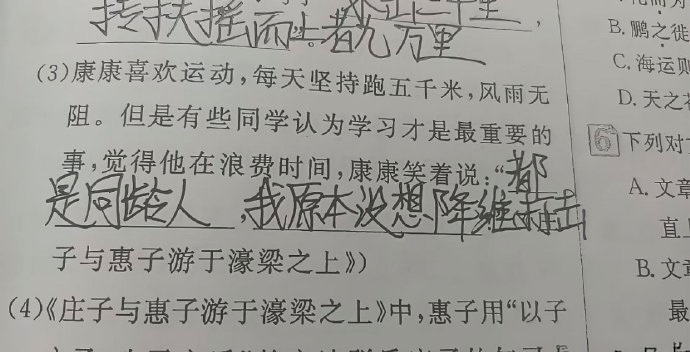 抟扶摇而上者九万里
(3)康康喜欢运动,每天坚持跑五千米,风雨无
阻。但是有些同学认为学习才是最重要的
事,觉得他在浪费时间,康康笑着说:“都
是同龄人,我原本没想降维打击
子与惠子游于濠梁之上》)
(4)《庄子与惠子游于濠梁之上》中,惠子用“以子
B.鹏之徙
C.海运则
D.天之
6 下列对
A.文章
直
B.文章
最